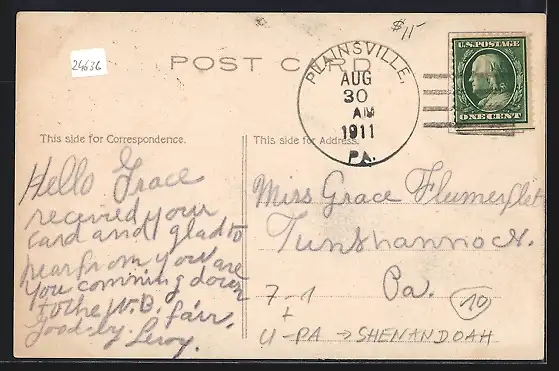 $15
24636
POST CARD
PLAINSVILLE,
AUG
30
AM
1911
PA.
U.S. POSTAGE
ONE CENT
This side for Correspondence.
This side for Address.
Hello Grace
received your
card and glad to
hear from you are
you comming down
to the W.B. fair.
Good-by. Leroy.
Miss Grace Flumerfelt
Tunkhannock.
Pa.
7-1
+
4-PA → SHENANDOAH
10